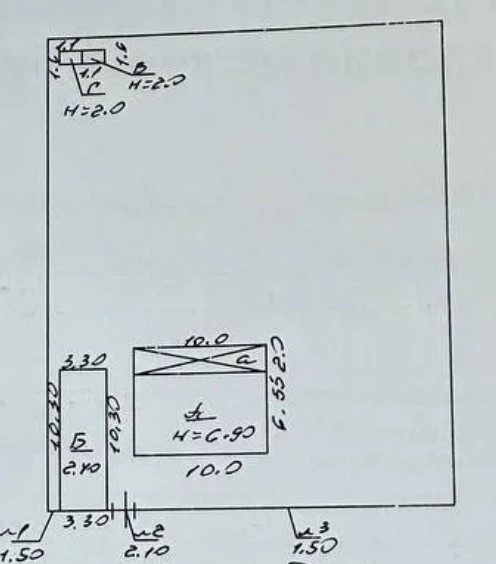 1.1
1.6
1.6
1.1
В
Г
H=2.0
H=2.0
10.0
3.30
а
2.0
6.55
10.30
10.30
А
H=6.90
Б
2.40
10.0
3.30
№1
1.50
№2
2.10
№3
1.50